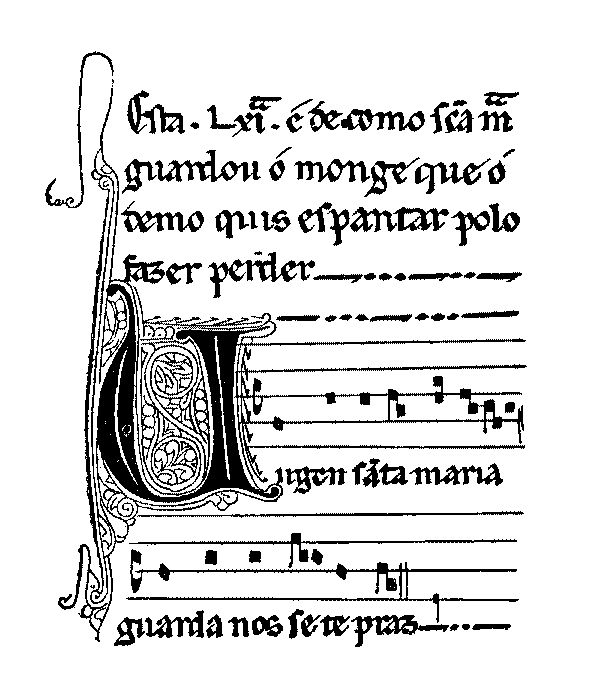 Esta · Lxiᵃ · é de como sc̃a mᵃ̃
guardou ó monge que ó
demo quis espantar polo
fazer perder
Uirgen sãta maria
guarda nos se te praz